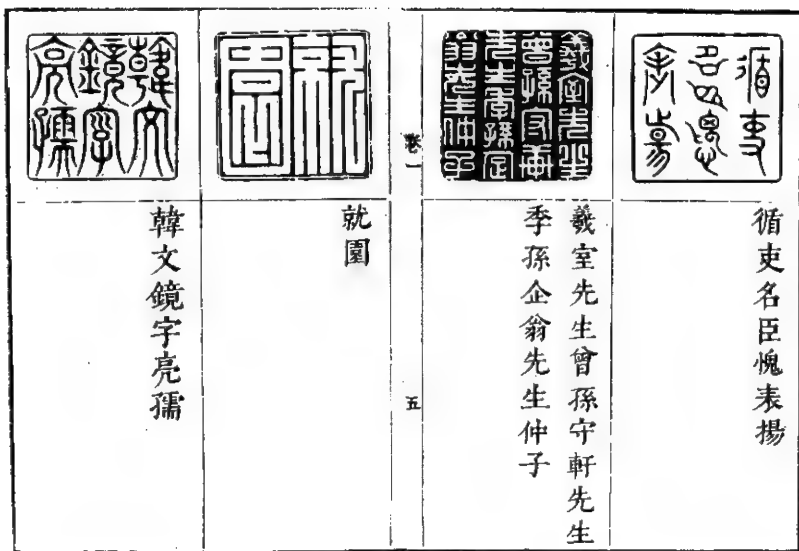 循吏名臣愧表揚
羲室先生曾孫守軒先生
季孫企翁先生仲子
卷一
五
就園
韓文鏡字亮孺